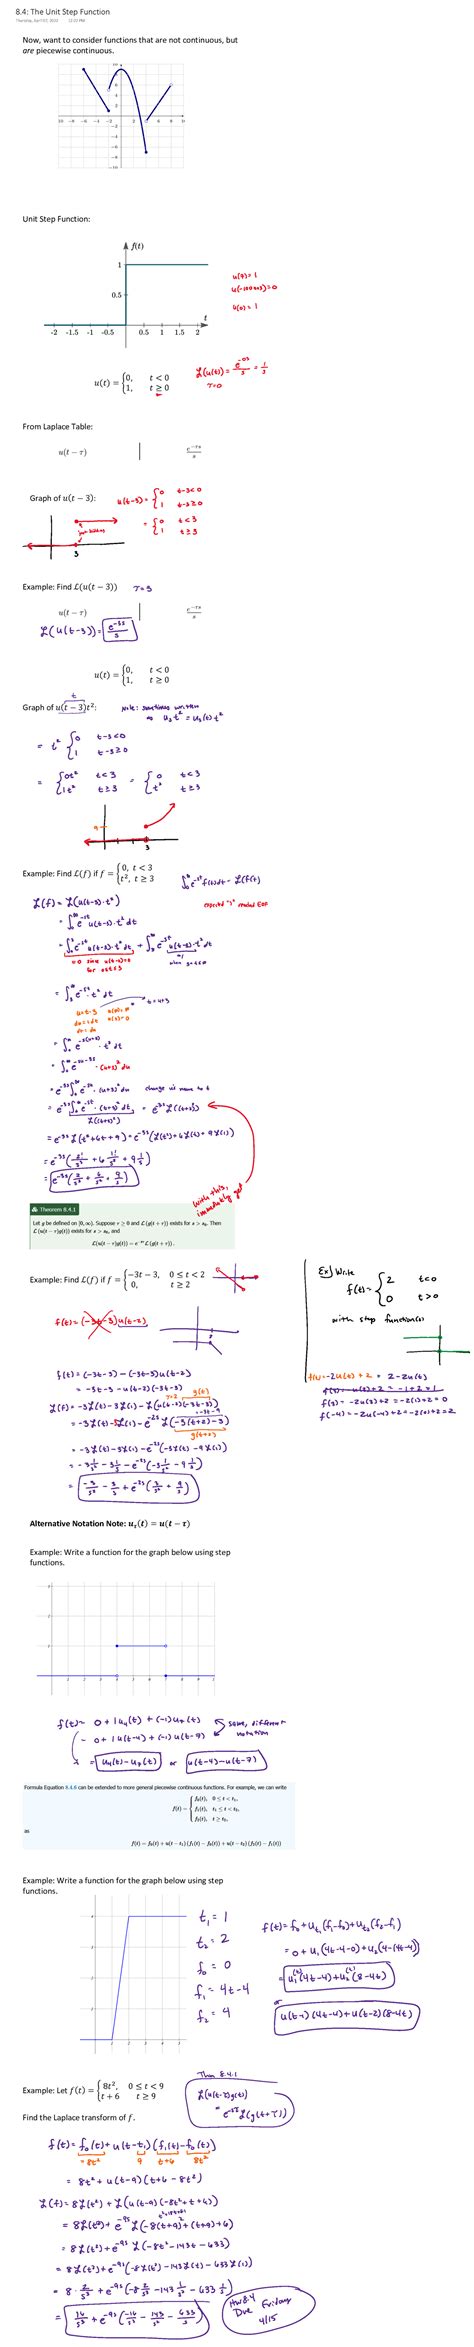 8.4: The Unit Step Function
Thursday, April 07, 2022 12:22 PM
Now, want to consider functions that are not continuous, but
are piecewise continuous.
Unit Step Function:
f(t)
1
0.5
t
-2 -1.5 -1 -0.5 0.5 1 1.5 2
u(7) = 1
u(0) = 1
u(t) = {0, t < 0
1, t ≥ 0
L(u(t)) = e^-0s/s = 1/s
τ=0
From Laplace Table:
u(t − τ) | e^−τs/s
Graph of u(t − 3):
u(t-3) = {0 t-3<0
1 t-3≥0
= {0 t<3
1 t≥3
3
Example: Find ℒ(u(t − 3)) τ=3
u(t − τ) | e^−τs/s
L(u(t-3)) = e^-3s/s
u(t) = {0, t < 0
1, t ≥ 0
t
Graph of u(t − 3)t²:
Note: sometimes written
as u₃t² = u₃(t)t²
= t² {0 t-3<0
1 t-3≥0
= {0t² t<3
1t² t≥3
= {0 t<3
t² t≥3
9
3
Example: Find ℒ(f) if f = {0, t < 3
t², t ≥ 3
∫₀^∞ e^-st f(t)dt = L(f(t))
L(f) = L(u(t-3)·t²)
= ∫₀^∞ e^-st u(t-3)·t² dt
= ∫₀³ e^-st u(t-3)·t² dt + ∫₃^∞ e^-st u(t-3)·t² dt
=0 since u(t-3)=0
for 0≤t≤3
= ∫₃^∞ e^-st·t² dt
u=t-3
t=u+3
du=dt
= e^-3s ∫₀^∞ e^-su·(u+3)² du change u's name to t
= e^-3s ∫₀^∞ e^-st·(t+3)² dt = e^-3s L((t+3)²)
L((t+3)²)
= e^-3s L(t²+6t+9) = e^-3s (L(t²)+6L(t)+9L(1))
= e^-3s (2!/s³ + 6 1!/s² + 9 1/s)
= e^-3s (2/s³ + 6/s² + 9/s)
with this,
immediately get
Theorem 8.4.1
Let g be defined on [0, ∞). Suppose τ ≥ 0 and L(g(t + τ)) exists for s > s₀. Then
L(u(t − τ)g(t)) exists for s > s₀, and
L(u(t − τ)g(t)) = e^−sτ L(g(t + τ)).
Example: Find ℒ(f) if f = {−3t − 3, 0 ≤ t < 2
0, t ≥ 2
f(t) = (-3t-3)u(t-2)
f(t) = (-3t-3) - (-3t-3)u(t-2)
= -3t-3 - u(t-2)(-3t-3)
g(t)
τ=2
L(f) = -3L(t) - 3L(1) - L(u(t-2)(-3t-3))
= -3L(t) - 3L(1) - e^-2s L(-3(t+2)-3)
g(t+2)
= -3L(t) - 3L(1) - e^-2s(-3L(t) - 9L(1))
= -3 1/s² - 3 1/s - e^-2s(-3 1/s² - 9 1/s)
= -3/s² - 3/s + e^-2s(3/s² + 9/s)
Ex) Write
f(t) = {2 t<0
0 t>0
with step function(s)
f(t) = -2u(t) + 2 = 2 - 2u(t)
f(3) = -2u(3)+2 = -2(1)+2 = 0
f(-4) = -2u(-4)+2 = -2(0)+2 = 2
Alternative Notation Note: u_τ(t) = u(t − τ)
Example: Write a function for the graph below using step
functions.
f(t) = 0 + 1u₄(t) + (-1)u₇(t)
= 0 + 1u(t-4) + (-1)u(t-7)
same, different
notation
= u₄(t) - u₇(t) or u(t-4) - u(t-7)
Formula Equation 8.4.6 can be extended to more general piecewise continuous functions. For example, we can write
f(t) = {f₀(t), 0 ≤ t < t₁,
f₁(t), t₁ ≤ t < t₂,
f₂(t), t ≥ t₂,
as
f(t) = f₀(t) + u(t − t₁)(f₁(t) − f₀(t)) + u(t − t₂)(f₂(t) − f₁(t))
Example: Write a function for the graph below using step
functions.
t₁ = 1
t₂ = 2
f₀ = 0
f₁ = 4t-4
f₂ = 4
f(t) = f₀ + u_t₁(f₁-f₀) + u_t₂(f₂-f₁)
= 0 + u₁(4t-4-0) + u₂(4-(4t-4))
= u₁(t)(4t-4) + u₂(t)(8-4t)
or
u(t-1)(4t-4) + u(t-2)(8-4t)
Example: Let f(t) = {8t², 0 ≤ t < 9
t + 6, t ≥ 9
Find the Laplace transform of f.
Thm 8.4.1
L(u(t-τ)g(t))
= e^-sτ L(g(t+τ))
f(t) = f₀(t) + u(t-t₁)(f₁(t)-f₀(t))
=8t² 9 t+6 8t²
= 8t² + u(t-9)(t+6-8t²)
L(f) = 8L(t²) + L(u(t-9)(-8t²+t+6))
t²+18t+81
= 8L(t²) + e^-9s L(-8(t+9)²+(t+9)+6)
= 8L(t²) + e^-9s L(-8t²-143t-633)
= 8L(t²) + e^-9s(-8L(t²)-143L(t)-633L(1))
= 8·2/s³ + e^-9s(-8 2/s³ - 143 1/s² - 633 1/s)
= 16/s³ + e^-9s(-16/s³ - 143/s² - 633/s)
HW 8.4
Due Friday
4/15